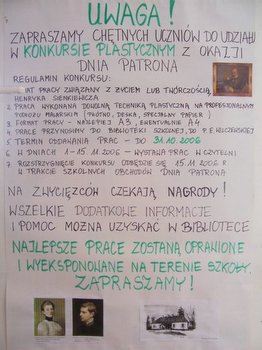 UWAGA!
ZAPRASZAMY CHĘTNYCH UCZNIÓW DO UDZIAŁU
W KONKURSIE PLASTYCZNYM Z OKAZJI
DNIA PATRONA
REGULAMIN KONKURSU:
TEMAT PRACY ZWIĄZANY Z ŻYCIEM LUB TWÓRCZOŚCIĄ
HENRYKA SIENKIEWICZA
2 PRACA WYKONANA DOWOLNĄ TECHNIKĄ PLASTYCZNĄ NA PROFESJONALNYM
PODŁOŻU MALARSKIM (PŁÓTNO, DESKA, SPECJALNY PAPIER)
3 FORMAT PRACY - NAJLEPIEJ A3, EWENTUALNIE A4
4 PRACE PRZYNOSIMY DO BIBLIOTEKI SZKOLNEJ, DO P. E. WILCZEWSKIEJ
5 TERMIN ODDAWANIA PRAC - DO 31.10.2006
6 W DNIACH 1-15.11.2006 - WYSTAWA PRAC W CZYTELNI
7 ROZSTRZYGNIĘCIE KONKURSU ODBĘDZIE SIĘ 15.11.2006 R
W TRAKCIE SZKOLNYCH OBCHODÓW DNIA PATRONA
NA ZWYCIĘZCÓW CZEKAJĄ NAGRODY!
WSZELKIE DODATKOWE INFORMACJE
I POMOC MOŻNA UZYSKAĆ W BIBLIOTECE
NAJLEPSZE PRACE ZOSTANĄ OPRAWIONE
I WYEKSPONOWANE NA TERENIE SZKOŁY.
ZAPRASZAMY!